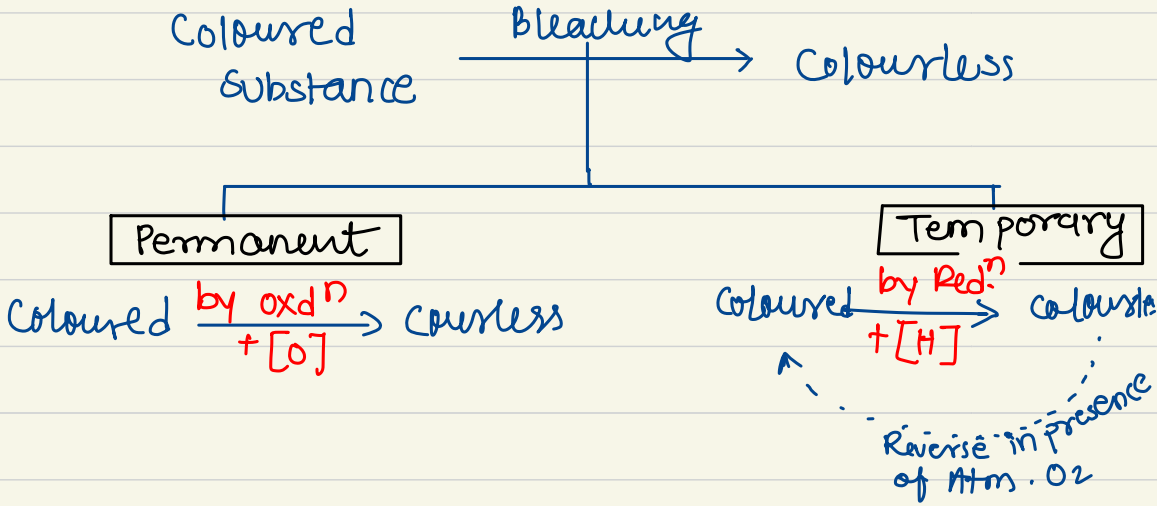 Coloured Substance
Bleaching
Colourless
Permanent
Temporary
Coloured by oxdⁿ + [O] Courless
Coloured by Redⁿ. + [H] colourle
Reverse in presence
of Atm. O2